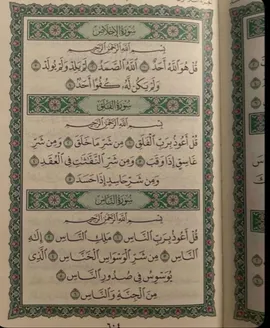 سُورَةُ الإِخْلَاصِ
بِسْمِ اللَّهِ الرَّحْمَٰنِ الرَّحِيمِ
قُلْ هُوَ اللَّهُ أَحَدٌ ۝١ اللَّهُ الصَّمَدُ ۝٢ لَمْ يَلِدْ وَلَمْ يُولَدْ ۝٣
وَلَمْ يَكُن لَّهُ كُفُوًا أَحَدٌ ۝٤
سُورَةُ الفَلَقِ
بِسْمِ اللَّهِ الرَّحْمَٰنِ الرَّحِيمِ
قُلْ أَعُوذُ بِرَبِّ الْفَلَقِ ۝١ مِن شَرِّ مَا خَلَقَ ۝٢ وَمِن شَرِّ
غَاسِقٍ إِذَا وَقَبَ ۝٣ وَمِن شَرِّ النَّفَّاثَاتِ فِي الْعُقَدِ ۝٤
وَمِن شَرِّ حَاسِدٍ إِذَا حَسَدَ ۝٥
سُورَةُ النَّاسِ
بِسْمِ اللَّهِ الرَّحْمَٰنِ الرَّحِيمِ
قُلْ أَعُوذُ بِرَبِّ النَّاسِ ۝١ مَلِكِ النَّاسِ ۝٢ إِلَٰهِ
النَّاسِ ۝٣ مِن شَرِّ الْوَسْوَاسِ الْخَنَّاسِ ۝٤ الَّذِي
يُوَسْوِسُ فِي صُدُورِ النَّاسِ ۝٥
مِنَ الْجِنَّةِ وَالنَّاسِ ۝٦
٦٠٤